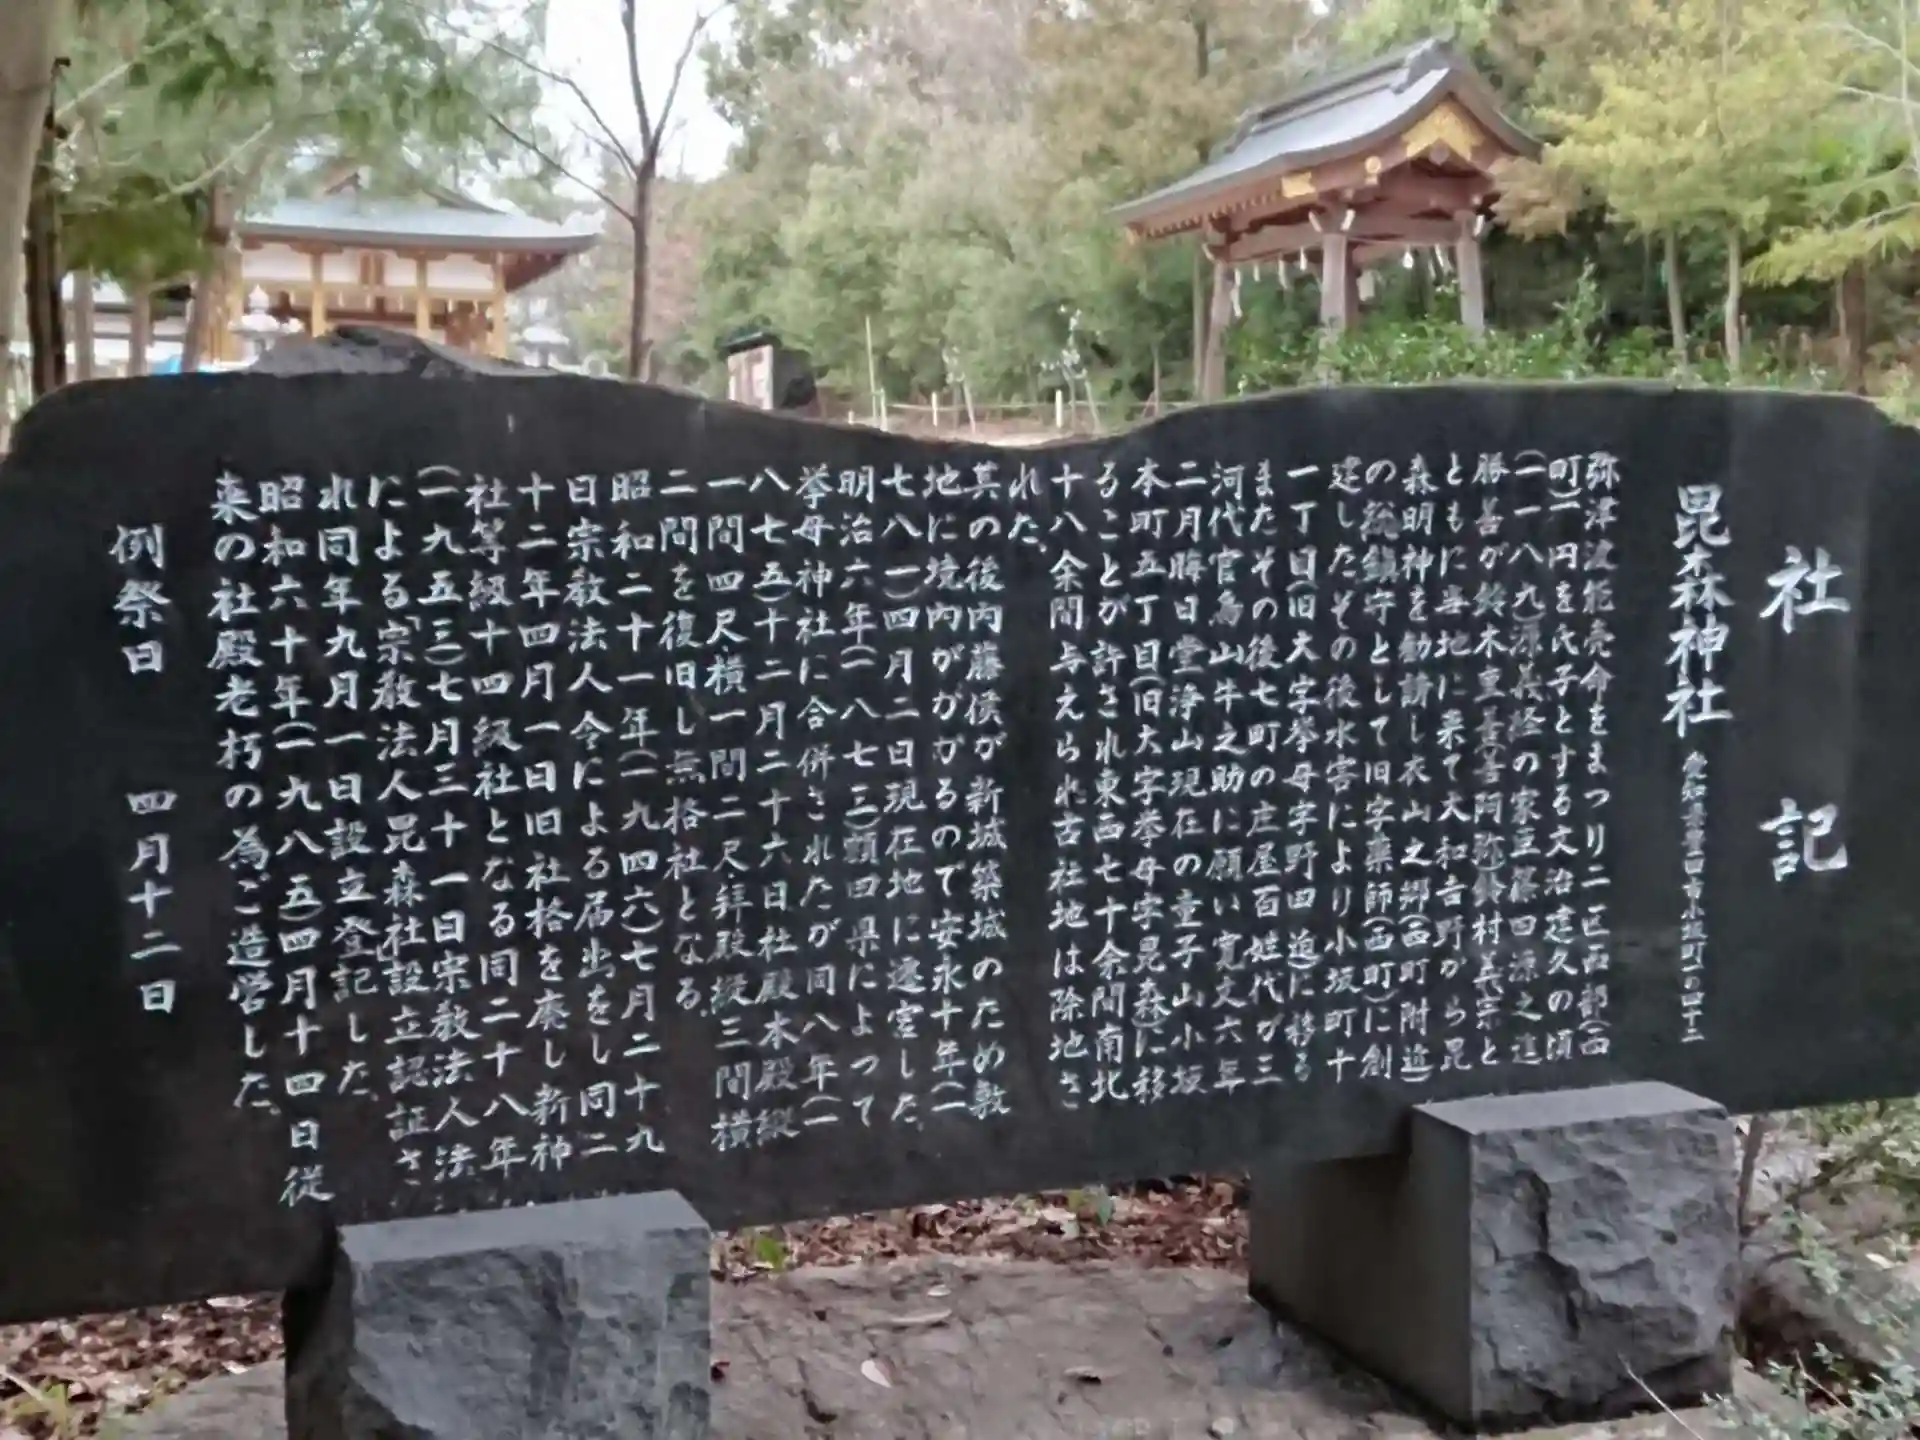 社記
昆森神社 愛知県豊田市小坂町一の四十二
弥津波能売命をまつり二区西部(西
町)一円を氏子とする文治建久の頃
(一一八九)源義経の家臣篠田源之進
勝善が鈴木重善(善阿弥)鈴村義宗と
ともに当地に来て大和吉野から昆
森明神を勧請し衣山之郷(西町附近)
の総鎮守として旧字薬師(西町)に創
建したその後水害により小坂町十
一丁目(旧大字挙母字野田迫)に移る
またその後七町の庄屋百姓代が三
河代官鳥山牛之助に願い寛文六年
二月晦日堂浄山現在の童子山小坂
本町五丁目(旧大字挙母字昆森)に移
ることが許され東西七十余間南北
十八余間与えられ古社地は除地さ
れた。
其の後内藤侯が新城築城のため敷
地に境内がかかるので安永十年(一
七八一)四月二日現在地に遷宮した。
明治六年(一八七三)額田県によって
挙母神社に合併されたが同八年(一
八七五)十二月二十六日社殿本殿縦
一間四尺横一間二尺拝殿縦三間横
二間を復旧し無格社となる。
昭和二十一年(一九四六)七月二十九
日宗教法人令による届出をし同二
十二年四月一日旧社格を廃し新神
社等級十四級社となる同二十八年
(一九五三)七月三十一日宗教法人法
による「宗教法人昆森社」設立認証さ
れ同年九月一日設立登記した。
昭和六十年(一九八五)四月十四日従
来の社殿老朽の為ご造営した。
例祭日 四月十二日